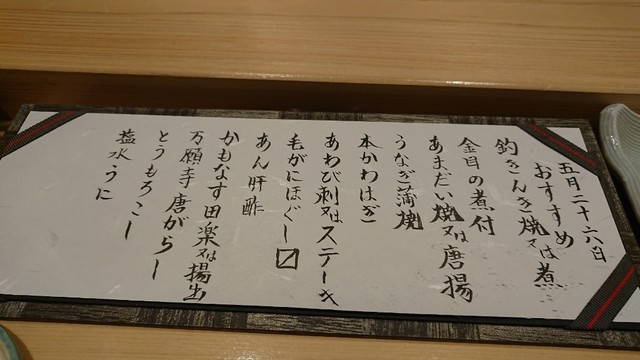 五月二十六日
おすすめ
釣きんき焼又は煮
金目の煮付
あまだい焼又は唐揚
うなぎ蒲焼
本かわはぎ
あわび刺又はステーキ
毛がにほぐし〼
あん肝酢
かもなす田楽又は揚出
万願寺唐がらし
とうもろこし
塩水うに